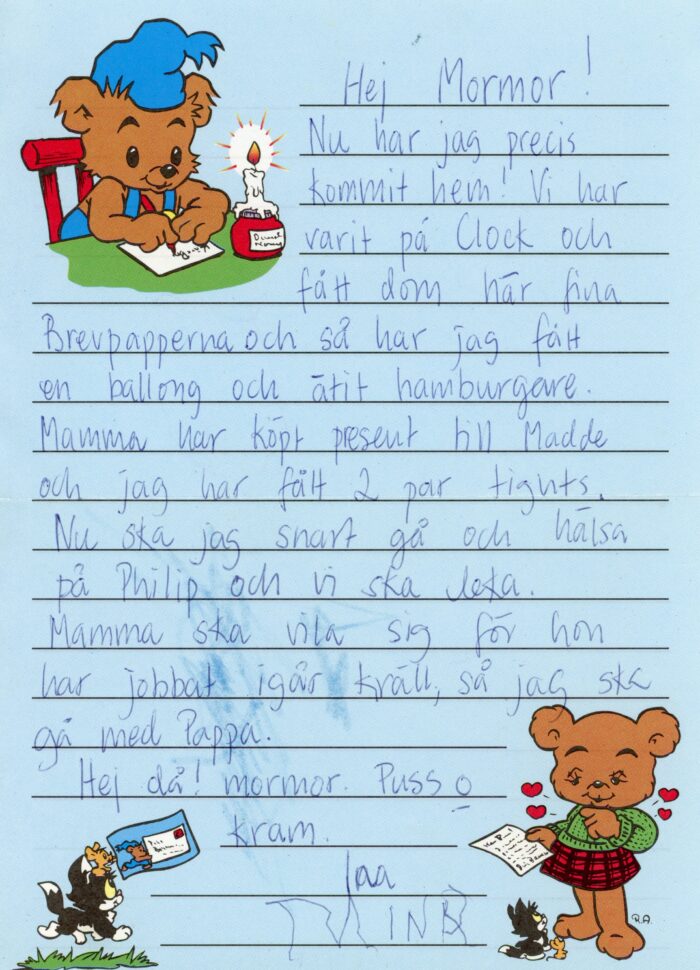 Hej Mormor!
Nu har jag precis
kommit hem! Vi har
varit på Clock och
fått dom här fina
Brevpapperna och så har jag fått
en ballong och ätit hamburgare.
Mamma har köpt present till Madde
och jag har fått 2 par tights.
Nu ska jag snart gå och hälsa
på Philip och vi ska leka.
Mamma ska vila sig för hon
har jobbat igår kväll, så jag ska
gå med Pappa.
Hej då! mormor. Puss o
kram.
R.A.